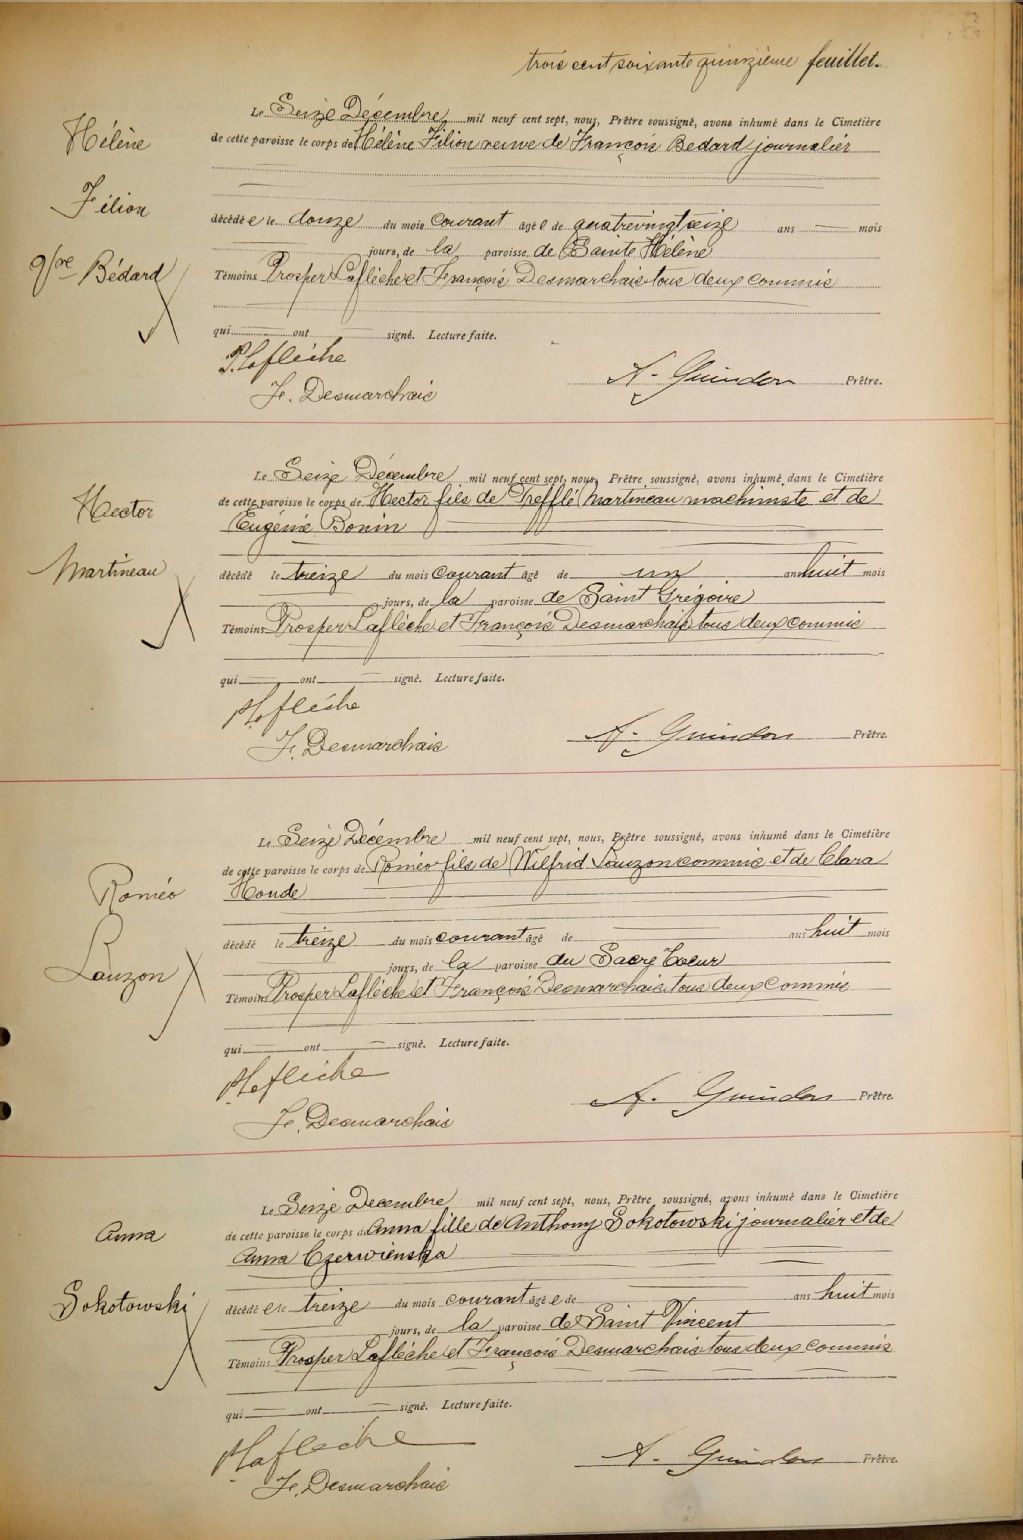 trois cent soixante quinzième feuillet.
Hélène
Filion
Bédard
Le Seize Décembre mil neuf cent sept, nous, Prêtre soussigné, avons inhumé dans le Cimetière
de cette paroisse le corps de Hélène Filion veuve de François Bedard journalier
décédée le douze du mois courant âgée de quatrevingt seize ans mois
jours, de la paroisse de Sainte Hélène
Témoins Prosper Laflèche et François Desmarchais tous deux commis
qui ont signé. Lecture faite.
P. Laflèche
F. Desmarchais
A. Guindon Prêtre.
Hector
Martineau
Le Seize Décembre mil neuf cent sept, nous, Prêtre soussigné, avons inhumé dans le Cimetière
de cette paroisse le corps de Hector fils de Trefflé Martineau machiniste et de
Eugénie Bonin
décédé le treize du mois courant âgé de un ans huit mois
jours, de la paroisse de Saint Grégoire
Témoins Prosper Laflèche et François Desmarchais tous deux commis
qui ont signé. Lecture faite.
P Laflèche
F. Desmarchais
A. Guindon Prêtre.
Roméo
Lauzon
Le Seize Décembre mil neuf cent sept, nous, Prêtre soussigné, avons inhumé dans le Cimetière
de cette paroisse le corps de Roméo fils de Wilfrid Lauzon commis et de Clara
Houde
décédé le treize du mois courant âgé de ans huit mois
jours, de la paroisse du Sacré Coeur
Témoins Prosper Laflèche et François Desmarchais tous deux commis
qui ont signé. Lecture faite.
P Laflèche
F. Desmarchais
A. Guindon Prêtre.
Anna
Sokotowski
Le Seize Decembre mil neuf cent sept, nous, Prêtre soussigné, avons inhumé dans le Cimetière
de cette paroisse le corps de Anna fille de Anthony Sokotowski journalier et de
Anna Czerwienska
décédée le treize du mois courant âgée de ans huit mois
jours, de la paroisse de Saint Vincent
Témoins Prosper Laflèche et François Desmarchais tous deux commis
qui ont signé. Lecture faite.
P Laflèche
F. Desmarchais
A. Guindon Prêtre.